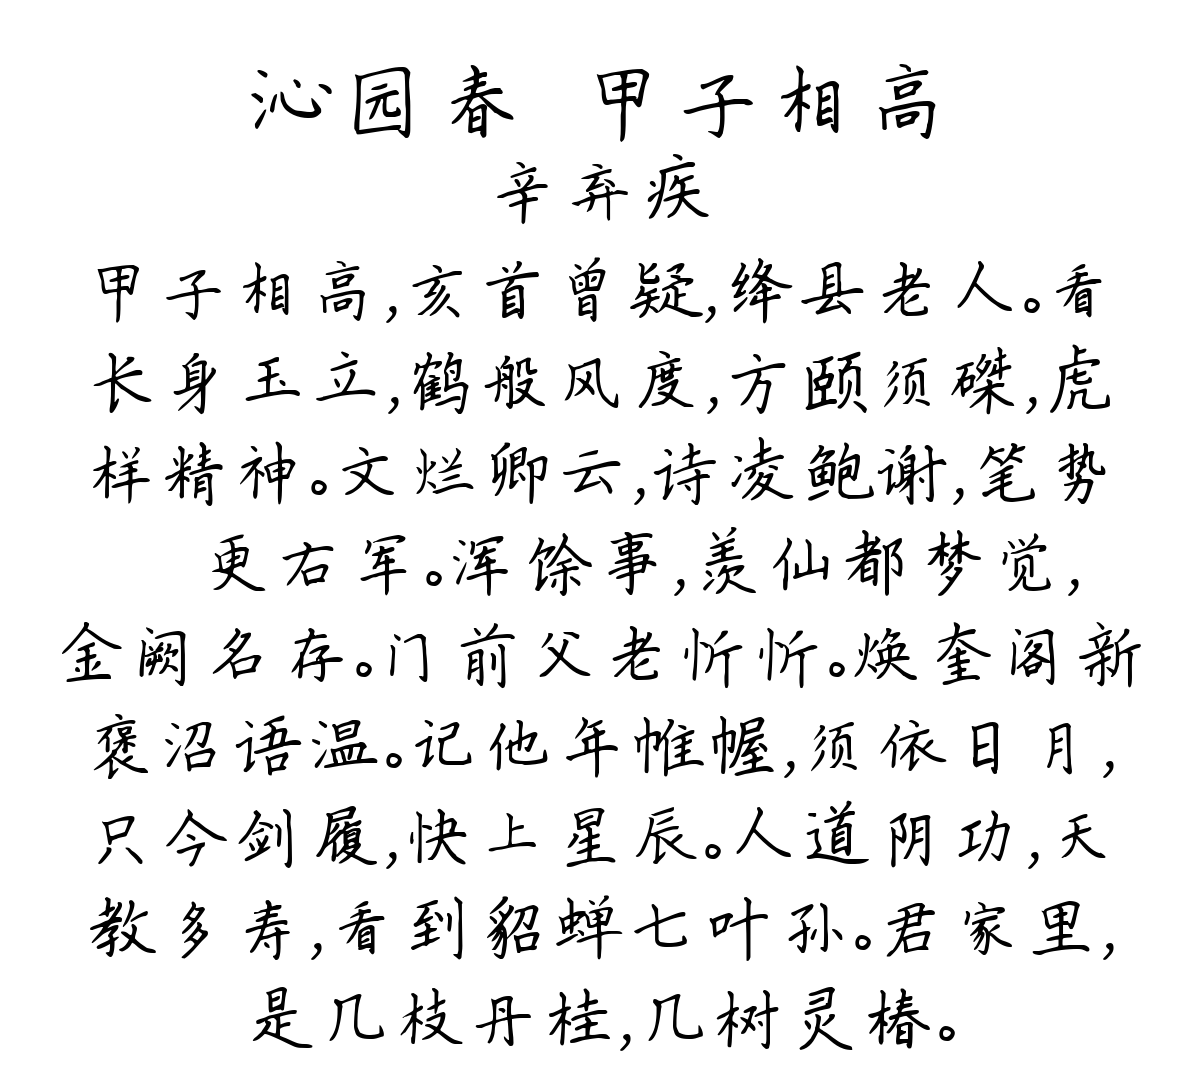 沁园春 甲子相高
辛弃疾
甲子相高,亥首曾疑,绛县老人。看
长身玉立,鹤般风度,方颐须磔,虎
样精神。文烂卿云,诗凌鲍谢,笔势
更右军。浑馀事,羡仙都梦觉,
金阙名存。门前父老忻忻。焕奎阁新
褒沼语温。记他年帷幄,须依日月,
只今剑履,快上星辰。人道阴功,天
教多寿,看到貂蝉七叶孙。君家里,
是几枝丹桂,几树灵椿。